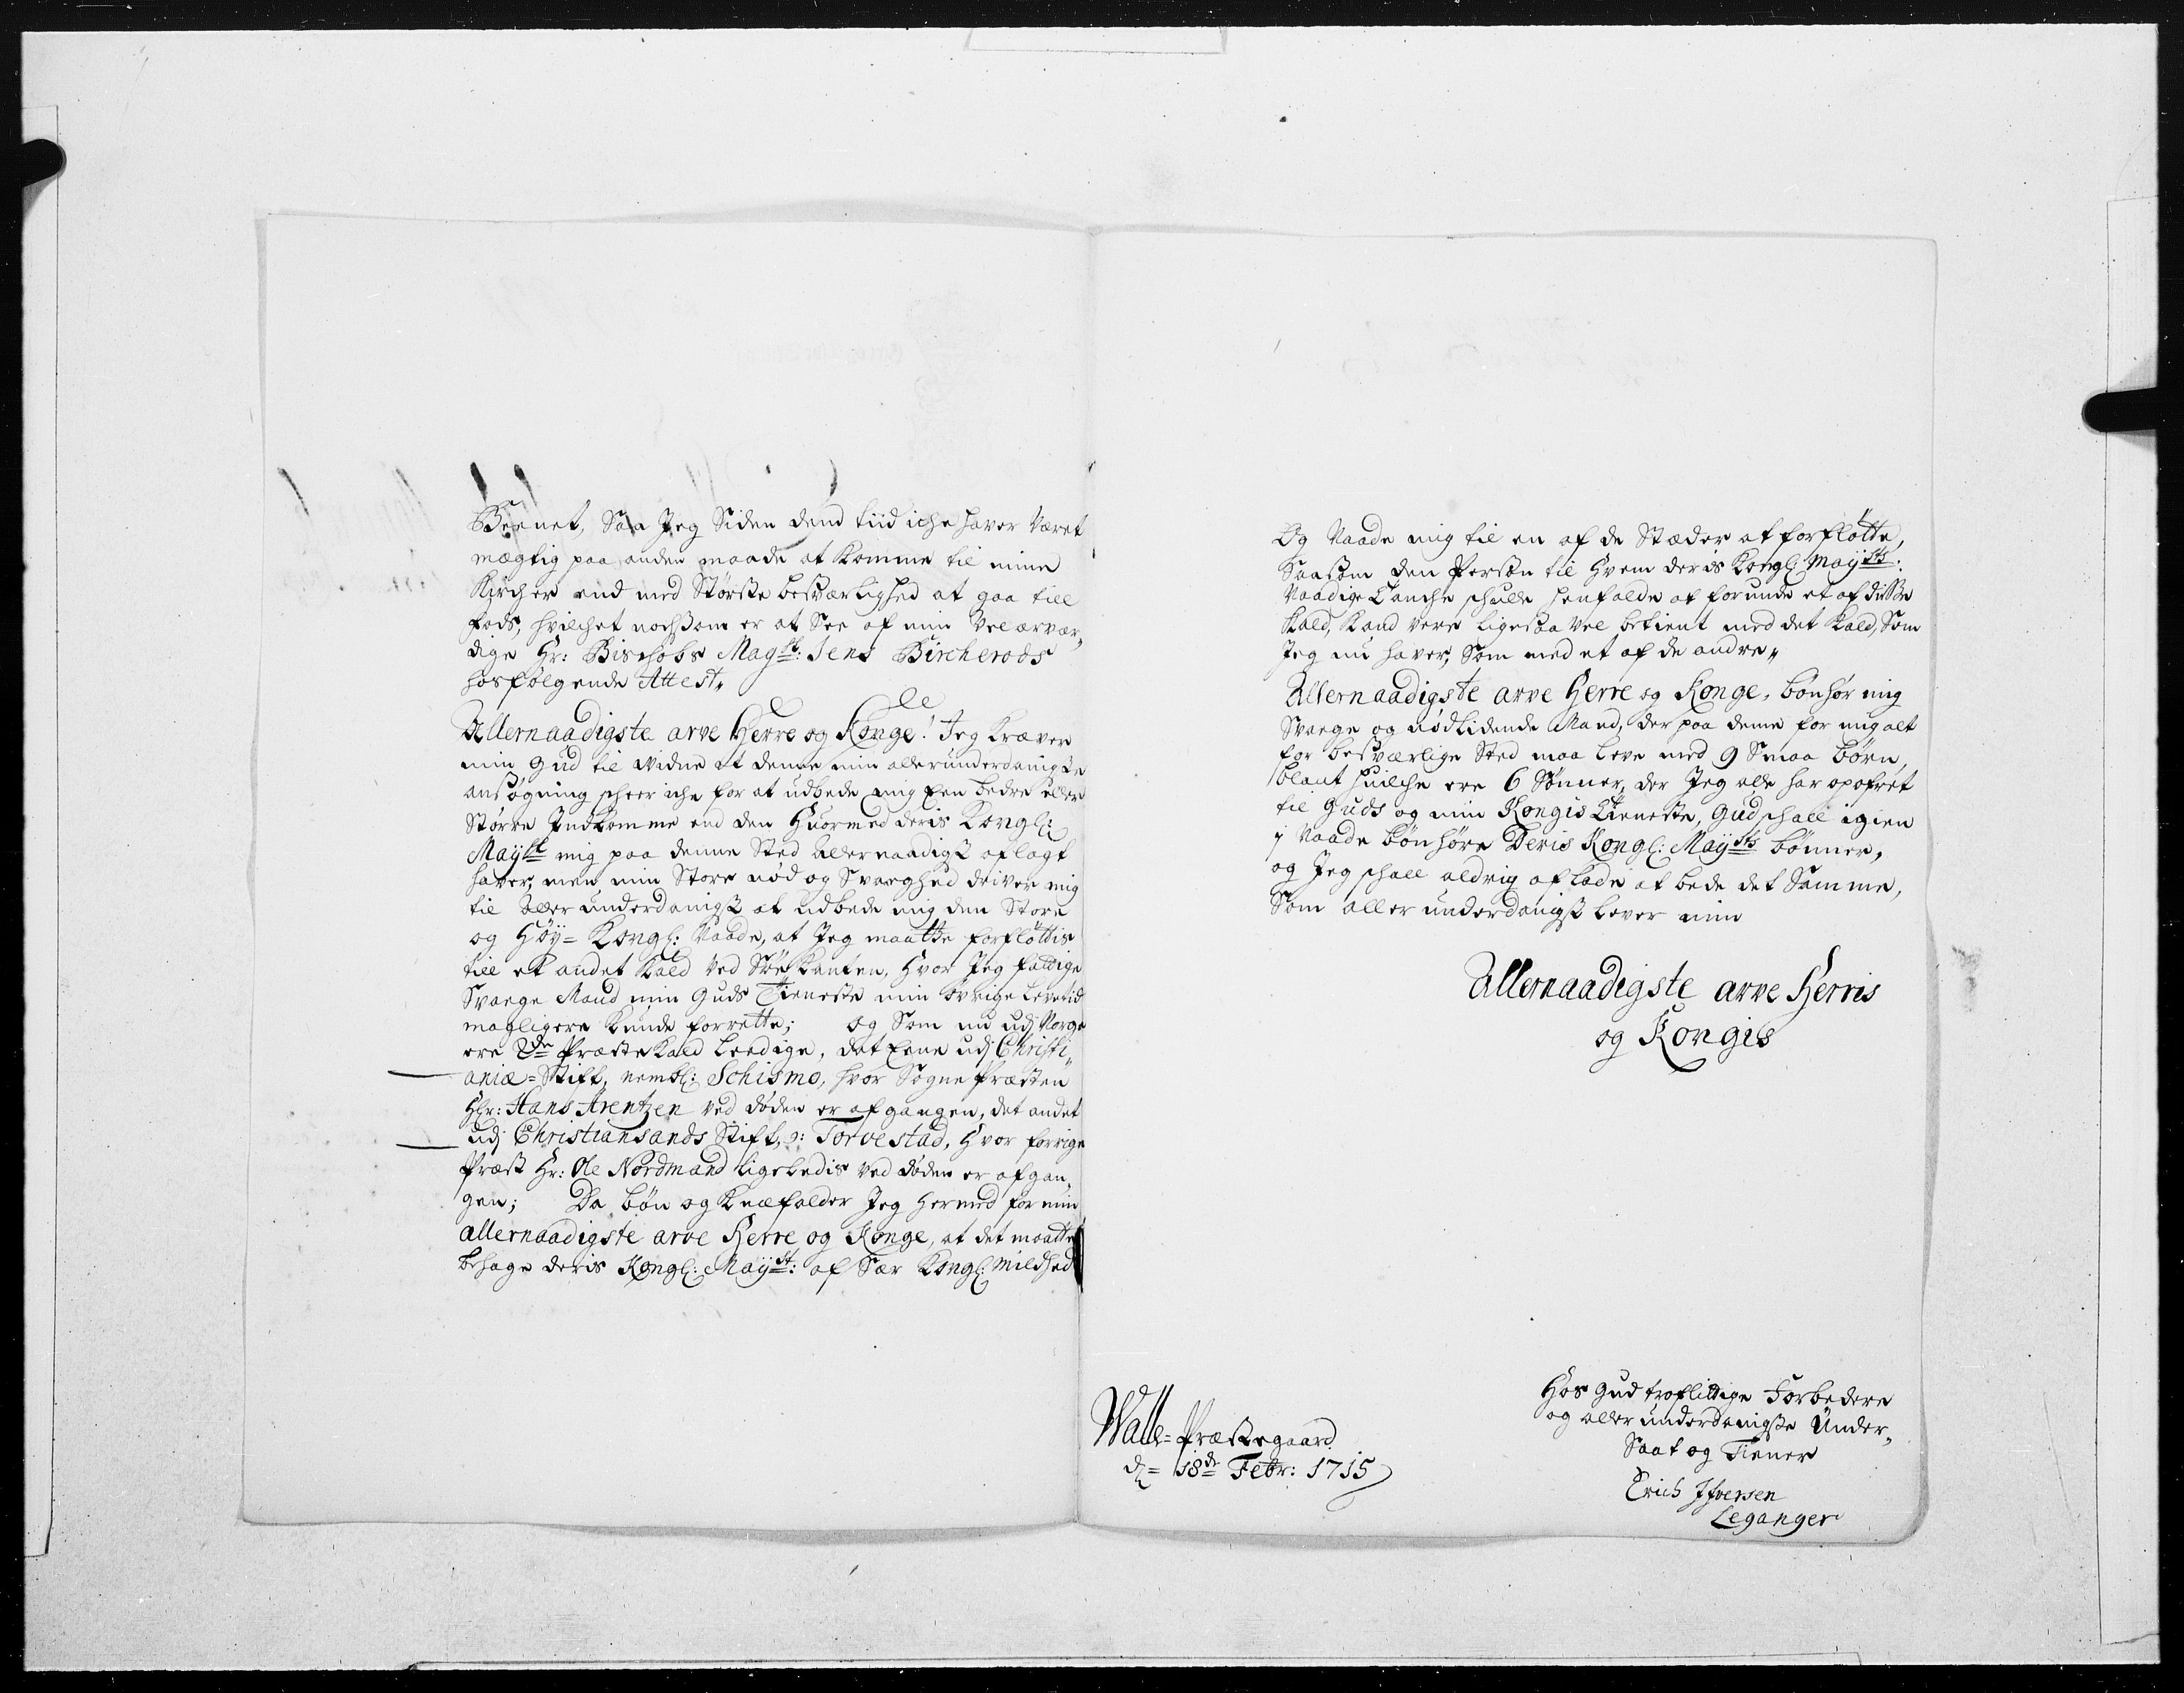 Beenet, Saa Jeg Siden dend tiid iche haver Været
mægtig paa anden maade at komme til mine
Kircher end med Største besværlighed at gaa till
fods, hvilchet nochsom er at See af min Vel ærvær„
dige Hr: Bischobs Mag.st: Jens Bircherods
hosfølgende Attest„
Allernaadigste arve Herre og Konge! Jeg kræver
min Gud til Vidne at denne min allerunderdanigste
ansøgning scheer iche for at udbede mig Een bedre eller
Større Indkomme end den Huormed deris Kongl:
Mayst mig paa denne Sted allernaadigst aflagt
haver, men min Store nød og Svaghed driver mig
til aller underdanigst at udbede mig den Store
og Høy= Kongl: Naade, at Jeg maatte forflöttis
till et andet Kald Ved Søe kanten, Hvor Jeg fattige
Svage Mand min Guds Tieneste min övrige levetid
mageligere kunde forrette; og Som nu udj Norge
ere 2de Præste Kald leedige, det Eene udj Christi„
aniæ=Stift, nembl: Schismo, hvor Sogne Præsten
Hr: Hans Arentzen ved døden er afgangen, det andet
udj Christiansands Stift, ɔ: Torvestad, Hvor forrige
Præst Hr: Ole Nordmand ligeledis ved døden er afgan„
gen; Da bøn og knæfalder Jeg hermed for min
allernaadigste arve Herre og Konge, at det maatte
behage deris Kongl: Mayst: af Sær Kongl: mildhed
Og Naade mig til en af de Stæder at forflötte,
Saasom den Person til Hvem deris Kongl: Maysts:
Naadige Tanche schulle henfalde at forunde et af disse
Kald, kand være ligesaa vel betient med det Kald, Som
Jeg nu haver, Som med et af de andre„
Allernaadigste arve Herre og Konge, bönhör mig
Svage og nödlidende Mand, der paa denne for mig alt
for besværlige Sted maa leve med 9 Smaa börn,
blant huilche ere 6 Sønner, der Jeg alle har opofret
til Guds og min Kongis tieneste, Gud schall igien
i Naade bönhöre Deris Kongl: Maysts bønner,
og Jeg schall aldrig aflade at bede det Samme,
Som aller underdanigst lever min
Allernaadigste arve Herris
og Kongis
Hos Gud troflittige Forbedere
og aller underdanigste Under„
Saat og Tiener
Erich Ifversen
Leganger
Walle= Præstegaard
d= 18de Febr: 1715